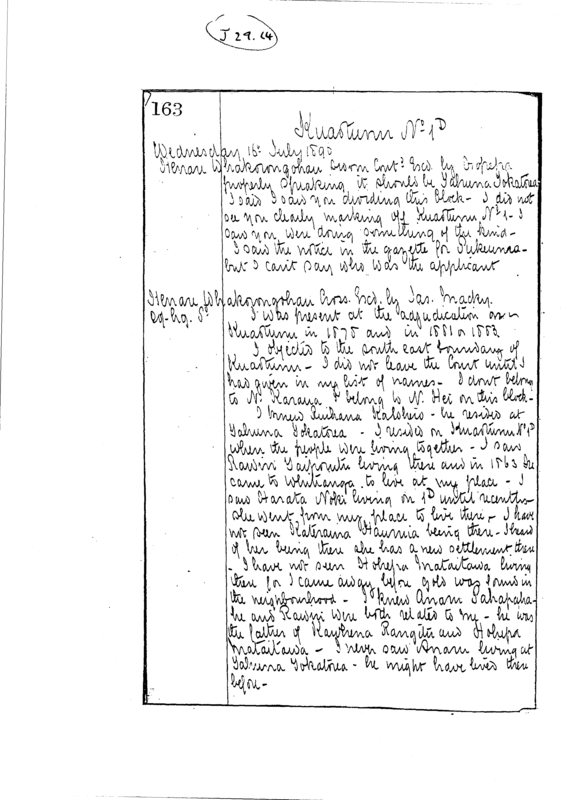 J 29.64
163
Kuaotunu No 1D
Wednesday 16th July 1890
Henare Whakarongohau Cross Cont'd Exd. by Hohepa
properly speaking it should be Tahuna Tokatoea
I said I saw you dividing this block - I did not
see you clearly marking off Kuaotunu No 1 - I
saw you were doing something of the kind -
I said the notice in the gazette for
but I can't say who was the applicant
Henare Whakarongohau Cross. Exd. by Jas. Mackay
I was present at the adjudication on
Kuaotunu in 1878 and in 1881 or 1883
I objected to the south east boundary of
Kuaotunu - I did not leave the Court until I
had given in my list of names - I dont belong
to N. Karaua I belong to N. Hei on this block -
I knew - he resided at
Tahuna Tokatoea - I resided on Kuaotunu No 1D
when the people were living together - I saw
Rawiri living there and in 1863 he
came to Whitianga to live at my place - I
saw Harata Noki living on 1D until recently
she went from my place to live there - I have
not seen Katerina Hauruia being there - I heard
of her being there she has a new settlement there
- I have not seen Hohepa Mataitawa living
there for I came away before gold was found in
the neighbourhood - I knew Anaru
he and Rawiri were both related to me - he was
the father of Rangitu and Hohepa
Mataitawa - I never saw Anaru living at
Tahuna Tokatoea - he might have lived there
before -